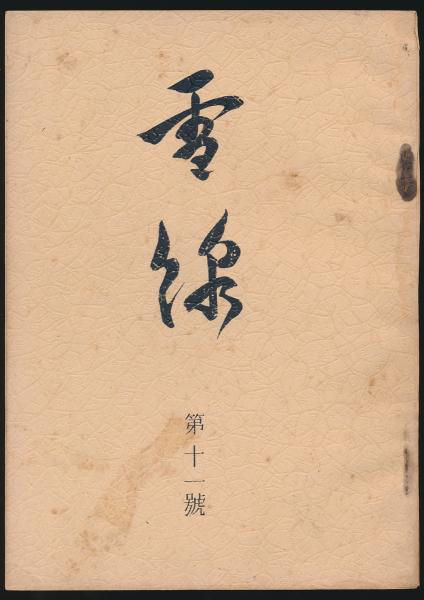 雪線
第十一號